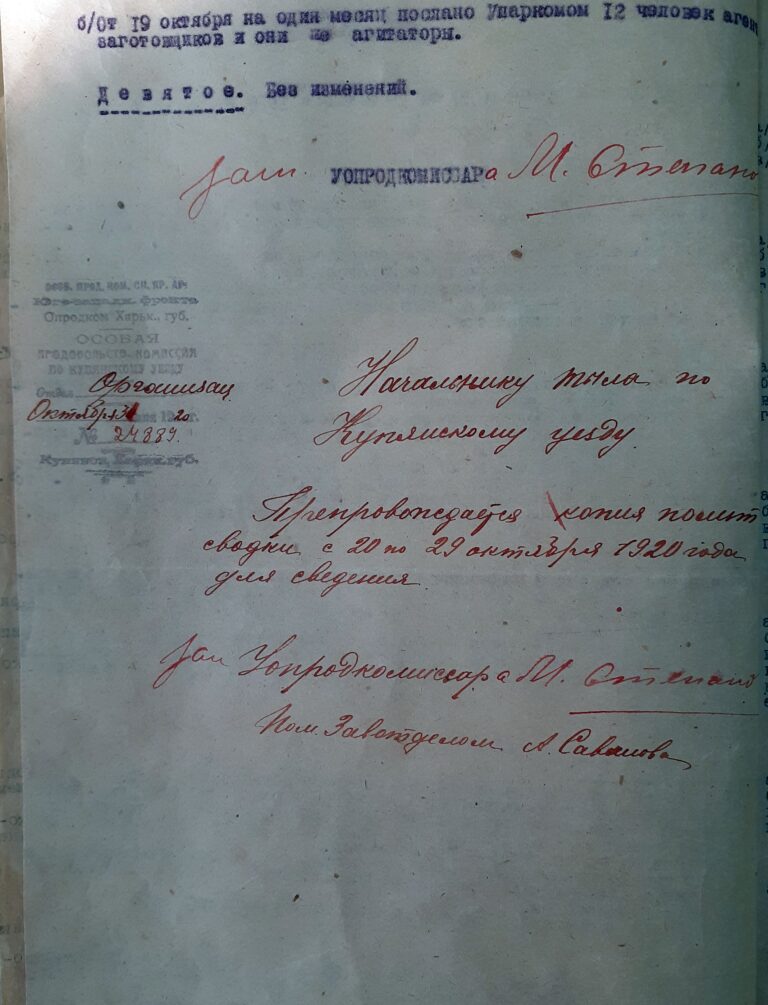 б/От 19 октября на один месяц послано Упаркомом 12 человек аген
заготовщиков и они же агитаторы.
Девятое. Без изменений.
Зам. УОПРОДКОМИССАРа М. Степано
ОСОБ. ПРОД. КОМ. СН. КР. АР.
Юго-западн. фронта
Опродком Харьк. губ.
ОСОБАЯ
ПРОДОВОЛЬСТВ. КОМИССИЯ
ПО КУПЯНСКОМУ УЕЗДУ
Отдел Организац
Октября 20 г.
№ 24889.
Купянск, Харьк. губ.
Начальнику тыла по
Купянскому уезду.
Препровождается копия полит
сводки с 20 по 29 октября 1920 года
для сведения
Зам Уопродкомиссара М. Степано
Пом. Завотделом А.